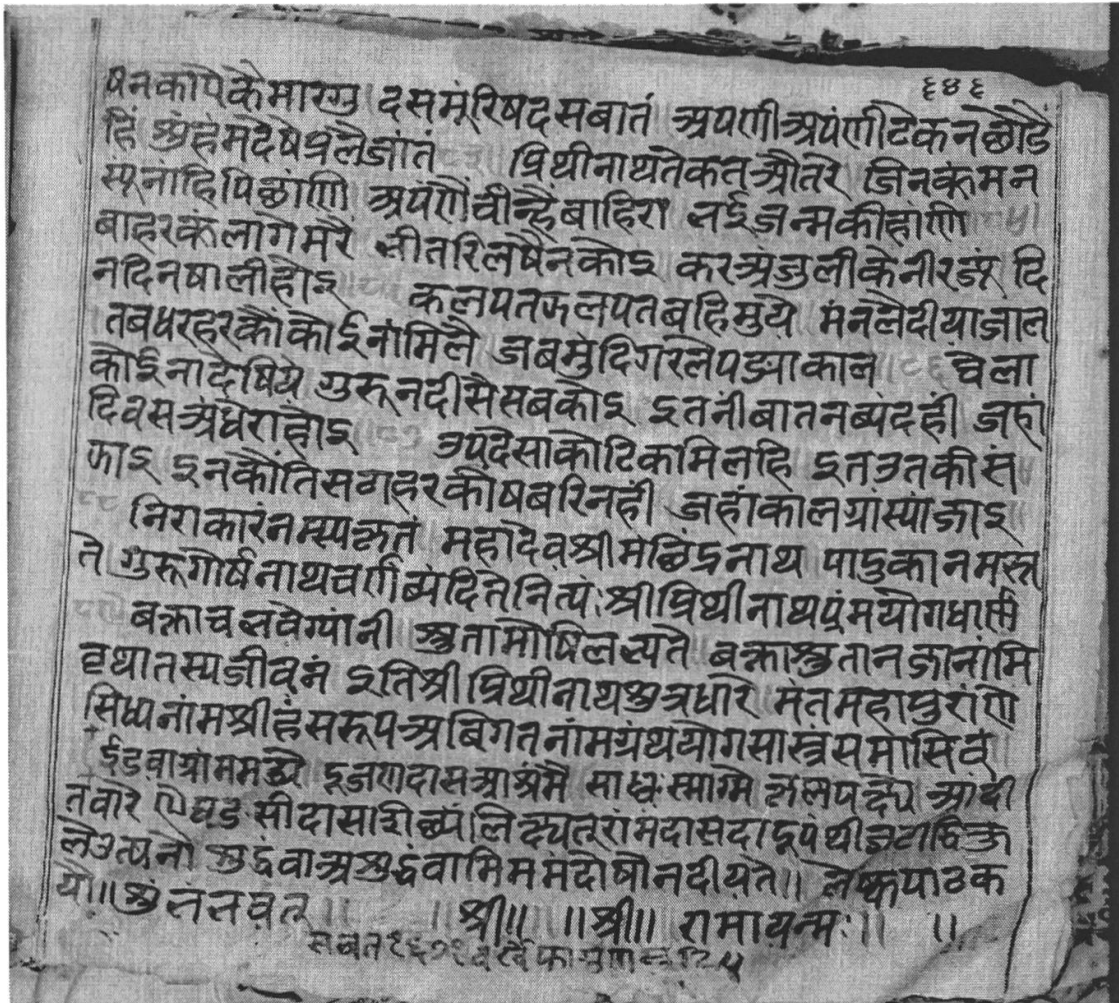 ६४६
षनकोपैकैमारगु दसमूंरिषदसबातं अपणीअपंणीटेकनछाडै
हिं अंहंमदेषेप्रलैजांतं ॥८३॥ प्रिथीनाथतेकतऔतरे जिनकूंमन
सूनांहिपिछांणि अपंणैचीन्हैबाहिरा भईजन्मकीहांणि
बाहरकूंलागेमरै भीतरिलषैनकोइ करअंजुलीकेनीरज्यूं दि
नदिनषालीहोइ कलपतफलपतबहिमुये मंनलैदीयाजाल
तबधरहरकौंकोईनांमिलै जबमुंदिगरलेपड्याकाल ॥८६ चेला
कोईनादेषिये गुरूनदीसैसबकोइ इतनीबातनब्यंदहीं जहां
दिवसअंधेराहोइ ॥८७ उपदेसीकोटिकमिलहि इतउतकीसं
फाइ इनकौंतिसगहरकीषबरिनहीं जहांकालग्रांस्यांजाइ
॥८८ निराकारंनमस्यकृतं महादेवश्रीमछिंद्रनाथ पादुकानमस्त
ते गुरूगोर्षनाथचर्णब्यंदितेनित्यं श्रीप्रिथीनाथप्रंमयोगधार्णं
बक्ताचभवेग्यांनी श्रुतामोषिलभ्यते बक्ताश्रुतानजानांमि
बृथातस्यजीवनं इतिश्रीप्रिथीनाथशुत्रधारे मंतमहापुरांणे
सिध्यनांमश्रीहंसरूपअबिगतनांमग्रंथयोगसास्त्रसमासिवं
ईडवाग्रांममध्ये दूजणदासआश्रंमै साध
तवारे सीदासशिष्यंलिष्यतूरांमदासदादूपंथी
लेउत्पनो शुद्धंवाअशुद्धंवामिममदोषोनदीयते॥ लेष्कपाठक
यो॥श्रुंभंभवतू ॥ ॥श्री॥ ॥श्री॥ रामायन्मः॥ ॥